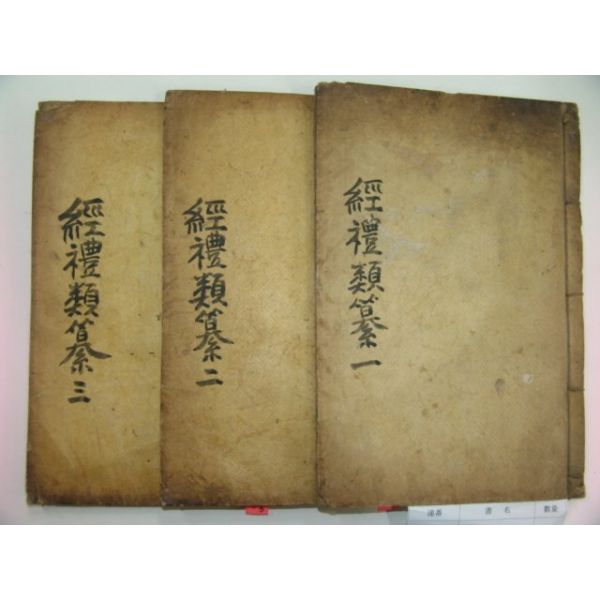 經禮類纂 一
經禮類纂 二
經禮類纂 三
書名
數量